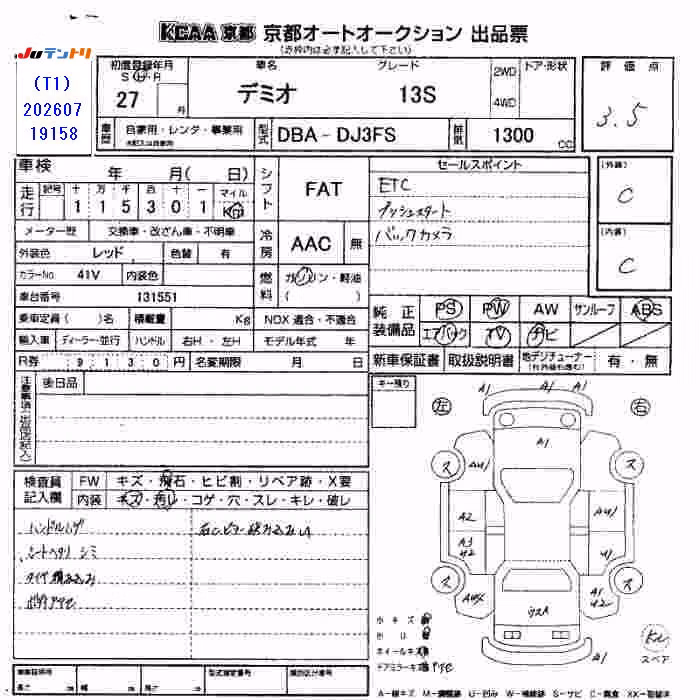 KCAA 京都 京都オートオークション 出品票
(赤枠内は必ず記入して下さい)
JUテントリ
(T1)
202607
19158
初度登録年月
S H R
27
月
車名
デミオ
グレード
13S
2WD
4WD
ドア・形状
評価点
3.5
車歴
自家用・レンタ・事業用
型式
DBA - DJ3FS
排気
1300
CC
車検
年 月( 日)
走行
記号 十 万 千 百 十 一 マイル
1 1 5 3 0 1 Km
メーター歴
交換車・改ざん車・不明車
外装色
レッド
色替
有
カラーNo.
41V
内装色
車台番号
131551
乗車定員 ( )名
積載量
Kg
NOX 適合・不適合
輸入車
ディーラー・並行
ハンドル
右H・左H
モデル年式 年
R券
9 1 3 0 円
名変期限
月 日
シフト
FAT
冷房
AAC
無
燃料
ガソリン・軽油
( )
セールスポイント
ETC
プッシュスタート
バックカメラ
(外装)
C
(内装)
C
純正装備品
PS PW AW サンルーフ ABS
エアバック TV ナビ
新車保証書
取扱説明書
地デジチューナー
有・無
注意事項(出品店記入)
後日品
キー預り
左
右
検査員記入欄
FW
キズ・飛石・ヒビ割・リペア跡・X要
内装
キズ・汚レ・コゲ・穴・スレ・キレ・破レ
ハンドルハゲ
シートヘタリ シミ
タイヤ積み込み
A1
A1
A1
A1
ス
ス
A4
A2
A3
U2
A4
U1
ス
ス
A1
U2
小キズ
ホイールキズ
ドアミラーキズ
スペア
長さ
幅
高さ
型式指定番号
類別区分番号
A-線キズ U-凹み S-サビ